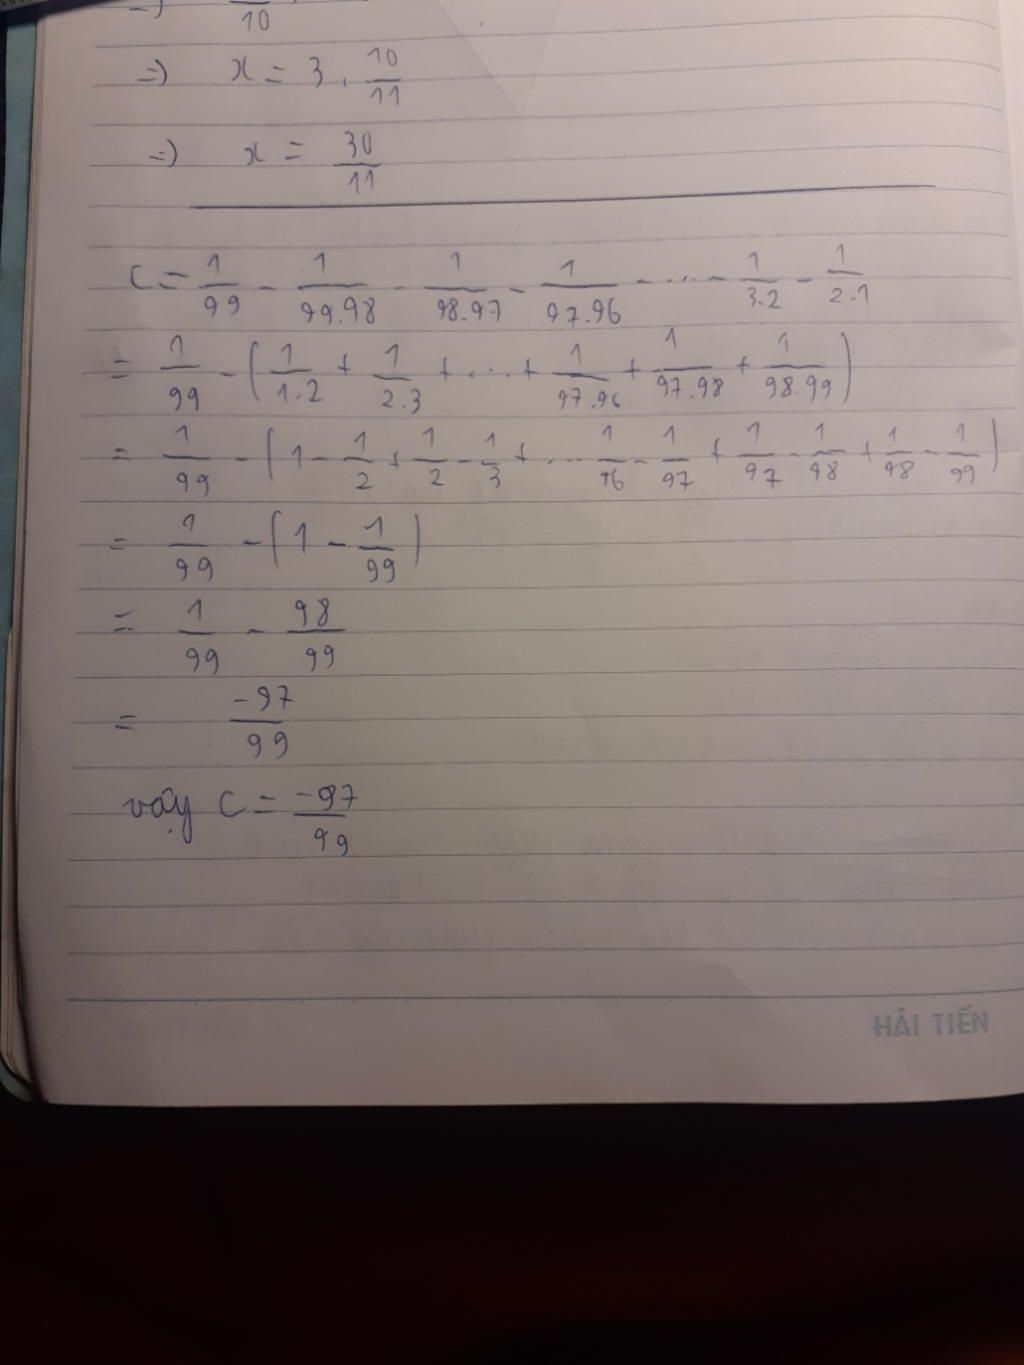 10
=) x = 3 . 10/11
=) x = 30/11
C = 1/99 - 1/99.98 - 1/98.97 - 1/97.96 - ... - 1/3.2 - 1/2.1
= 1/99 - ( 1/1.2 + 1/2.3 + ... + 1/97.96 + 1/97.98 + 1/98.99 )
= 1/99 - ( 1 - 1/2 + 1/2 - 1/3 + ... 1/96 - 1/97 + 1/97 - 1/98 + 1/98 - 1/99 )
= 1/99 - ( 1 - 1/99 )
= 1/99 - 98/99
= -97/99
vậy C = -97/99
HẢI TIẾN